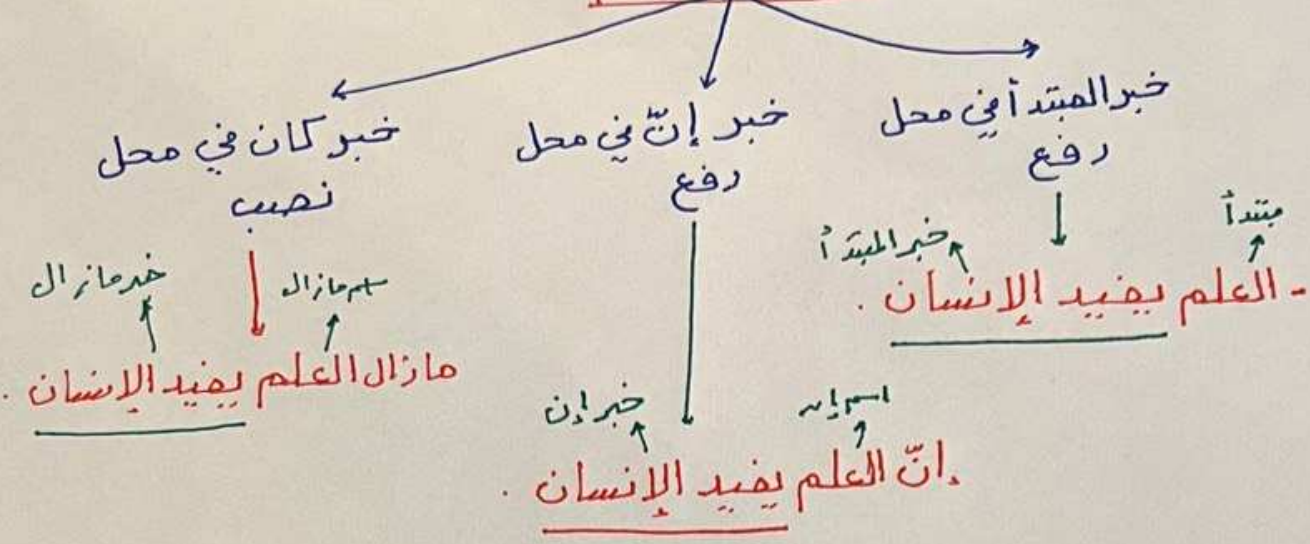 خبر المبتدأ في محل
رفع
مبتدأ
خبر المبتدأ
- العلم يفيد الإنسان .
خبر إنّ في محل
رفع
اسم إن
خبر إن
. إنّ العلم يفيد الإنسان .
خبر كان في محل
نصب
اسم مازال
خبر مازال
مازال العلم يفيد الإنسان .